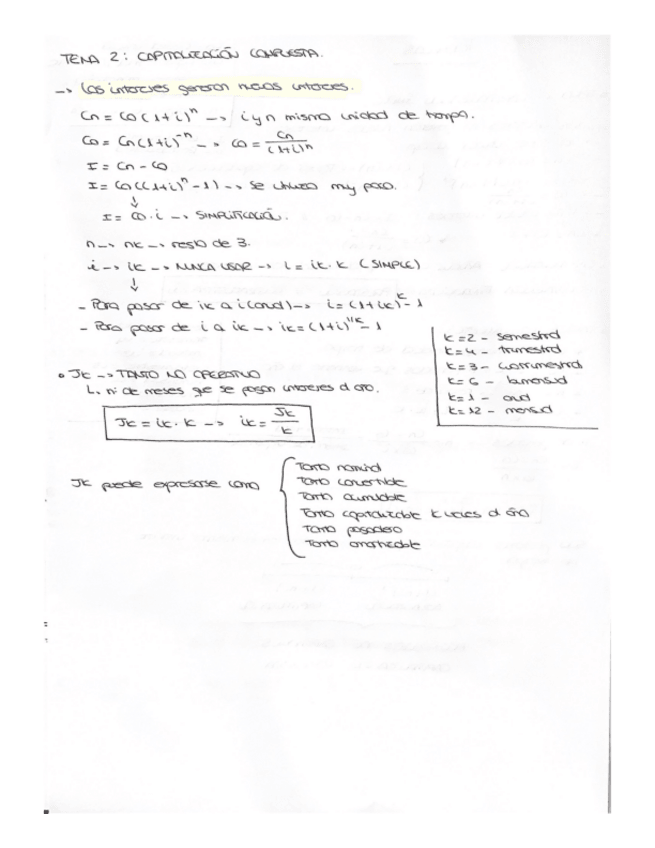 TEMA 2: CAPITALIZACIÓN COMPUESTA.
-> Los intereses generan nuevos intereses.
Cn = Co (1+i)^n -> i y n misma unidad de tiempo.
Co = Cn (1+i)^-n -> Co = Cn/(1+i)^n
I = Cn - Co
I = Co((1+i)^n - 1) -> se utiliza muy poco.
↓
I = Co · i -> SIMPLIFICACIÓN.
n -> nk -> resto de 3.
i -> ik -> NUNCA USAR -> i = ik · k (SIMPLE)
↓
- Para pasar de ik a i (anual) -> i = (1+ik)^k - 1
- Para pasar de i a ik -> ik = (1+i)^1/k - 1
k = 2 - semestral
k = 4 - trimestral
k = 3 - cuatrimestral
k = 6 - bimensual
k = 1 - anual
k = 12 - mensual
• Jk -> TANTO NO OPERATIVO
L. nº de meses que se pagan intereses al año.
Jk = ik · k -> ik = Jk/k
Jk puede expresarse como
Tanto nominal
Tanto convertible
Tanto acumulable
Tanto capitalizable k veces al año
Tanto pagadero
Tanto